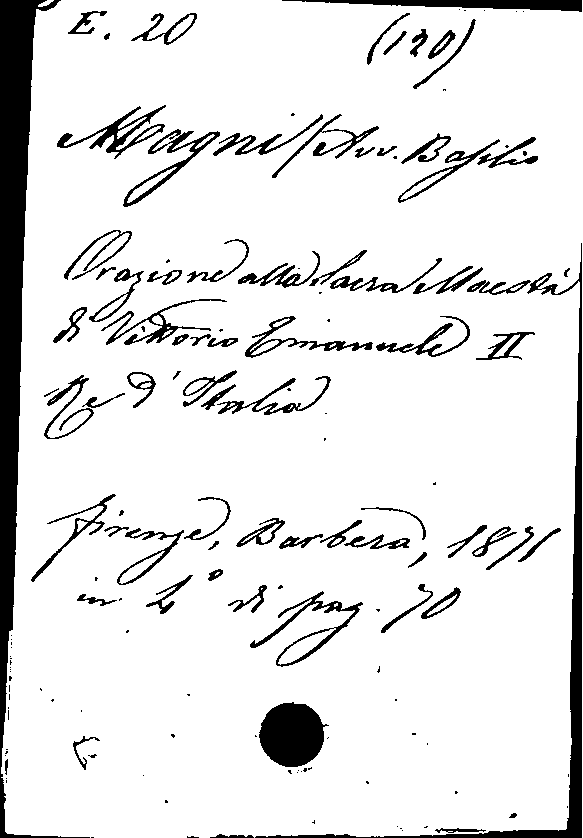 E. 20 (120)
Magni / Avv. Basilio
Orazione alla Sacra Maestà
di Vittorio Emanuele II
Re d'Italia
Firenze, Barbera, 1871
in 4° di pag. 70